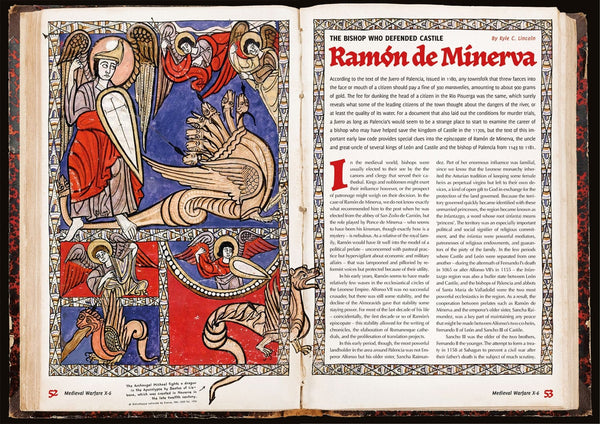 The Archangel Michael fights a dragon
in the Apocalypse by Beatus of Lie-
bana, which was created in Navarre in
the late twelfth century.
52
Medieval Warfare X-6
THE BISHOP WHO DEFENDED CASTILE
By Kyle C. Lincoln
Ramón de Minerva
According to the text of the fuero of Palencia, issued in 1180, any townsfolk that threw faeces into
the face or mouth of a citizen should pay a fine of 300 maravedíes, amounting to about 900 grams
of gold. The fee for dunking the head of a citizen in the Rio Pisuerga was the same, which surely
reveals what some of the leading citizens of the town thought about the dangers of the river, or
at least the quality of its water. For a document that also laid out the conditions for murder trials,
a fuero as long as Palencia's would seem to be a strange place to start to examine the career of
a bishop who may have helped save the kingdom of Castile in the 1170s, but the text of this im-
portant early law code provides special clues into the episcopate of Ramón de Minerva, the uncle
and great-uncle of several kings of León and Castile and the bishop of Palencia from 1148 to 1181.
In the medieval world, bishops were
usually elected to their see by the
canons and clergy that served their ca-
thedral. Kings and noblemen might exert
their influence however, or the prospect
of patronage might weigh on their decision. In the
case of Ramón de Minerva, we do not know exactly
what recommended him to the post when he was
elected from the abbey of San Zoilo de Carrión, but
the role played by Ponce de Minerva – who seems
to have been his kinsman, though exactly how is a
mystery – is nebulous. As a relative of the royal fam-
ily, Ramón would have fit well into the model of a
political prelate – unconcerned with pastoral prac-
tice but hypervigilant about economic and military
affairs – that was lampooned and pilloried by re-
former voices but protected because of their utility.
In his early years, Ramón seems to have made
relatively few waves in the ecclesiastical circles of
the Leonese Empire. Alfonso VII was no successful
crusader, but there was still some stability, and the
decline of the Almoravids gave that stability some
staying power. For most of the last decade of his life
– coincidentally, the first decade or so of Ramón's
episcopate – this stability allowed for the writing of
chronicles, the elaboration of Romanesque cathe-
drals, and the proliferation of translation projects.
In this early period, though, the most powerful
landholder in the area around Palencia was not Em-
peror Alfonso but his elder sister, Sancha Raimún-
dez. Part of her enormous influence was familial,
since we know that the Leonese monarchy inher-
ited the Asturian tradition of keeping some female
heirs as perpetual virgins but left to their own de-
vices, a kind of open gift to God in exchange for the
protection of the land governed. Because the ter-
ritory governed quickly became identified with these
unmarried princesses, the region became known as
the Infantazgo, a word whose root (infanta) means
'princess'. The territory was an especially important
political and social signifier of religious commit-
ment, and the infantas were powerful mediators,
patronesses of religious endowments, and guaran-
tors of the piety of the family. In the few periods
where Castile and León were separated from one
another – during the aftermath of Fernando I's death
in 1065 or after Alfonso VII's in 1155 – the Infan-
tazgo region was also a buffer state between León
and Castile, and the bishops of Palencia and abbots
of Santa María de Valladolid were the two most
powerful ecclesiastics in the region. As a result, the
cooperation between prelates such as Ramón de
Minerva and the emperor's elder sister, Sancha Rai-
mundez, was a key part of maintaining any peace
that might be made between Alfonso's two co-heirs,
Fernando II of León and Sancho III of Castile.
Sancho III was the older of the two brothers,
Fernando II the younger. The attempt to form a trea-
ty in 1158 at Sahagun to prevent a civil war after
their father's death is the subject of much scrutiny,
Medieval Warfare X-6
53